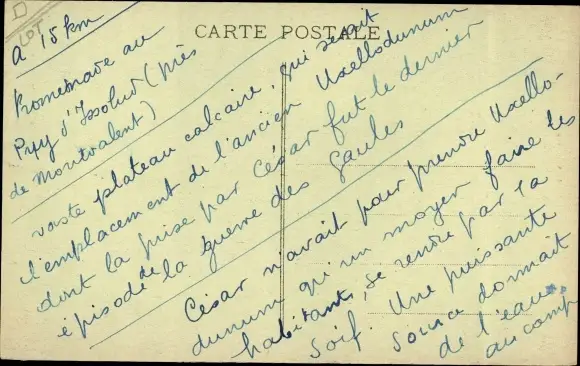 D
LOT
CARTE POSTALE
A 15 km
Promenade au
Puy d'Issolud (près
de Montvalent)
vaste plateau calcaire, qui serait
l'emplacement de l'ancien Uxellodunum
dont la prise par César fut le dernier
épisode de la guerre des Gaules
César n'avait pour prendre Uxello-
dunum qu'un moyen faire les
habitants, se rendre par la
soif. Une puissante
source donnait
de l'eau
au camp